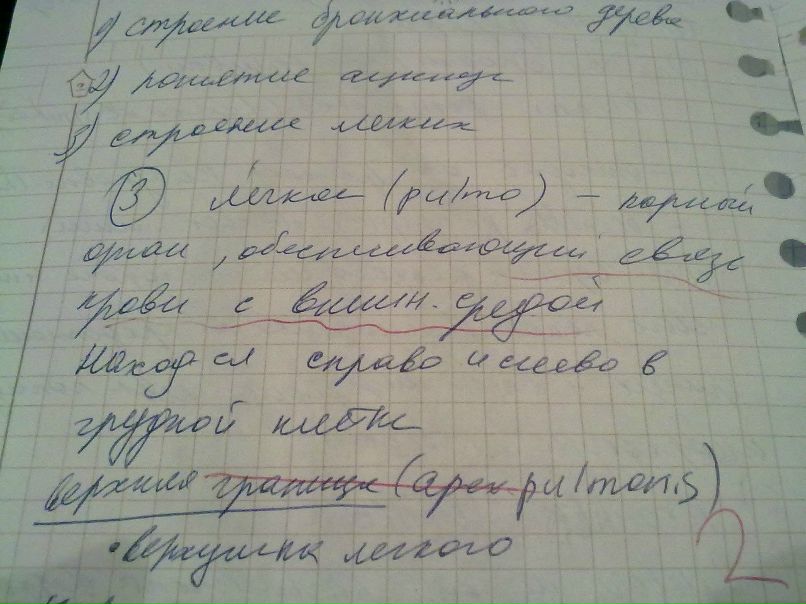 1) строение бронхиального дерева
2) понятие ацинуса
3) строение легких
3 лёгкое (pulmo) - парный
орган, обеспечивающий связь
крови с внешн. средой
Наход-ся справо и слево в
грудной клетке
верхняя граница (apex pulmonis)
• верхушка легкого
2